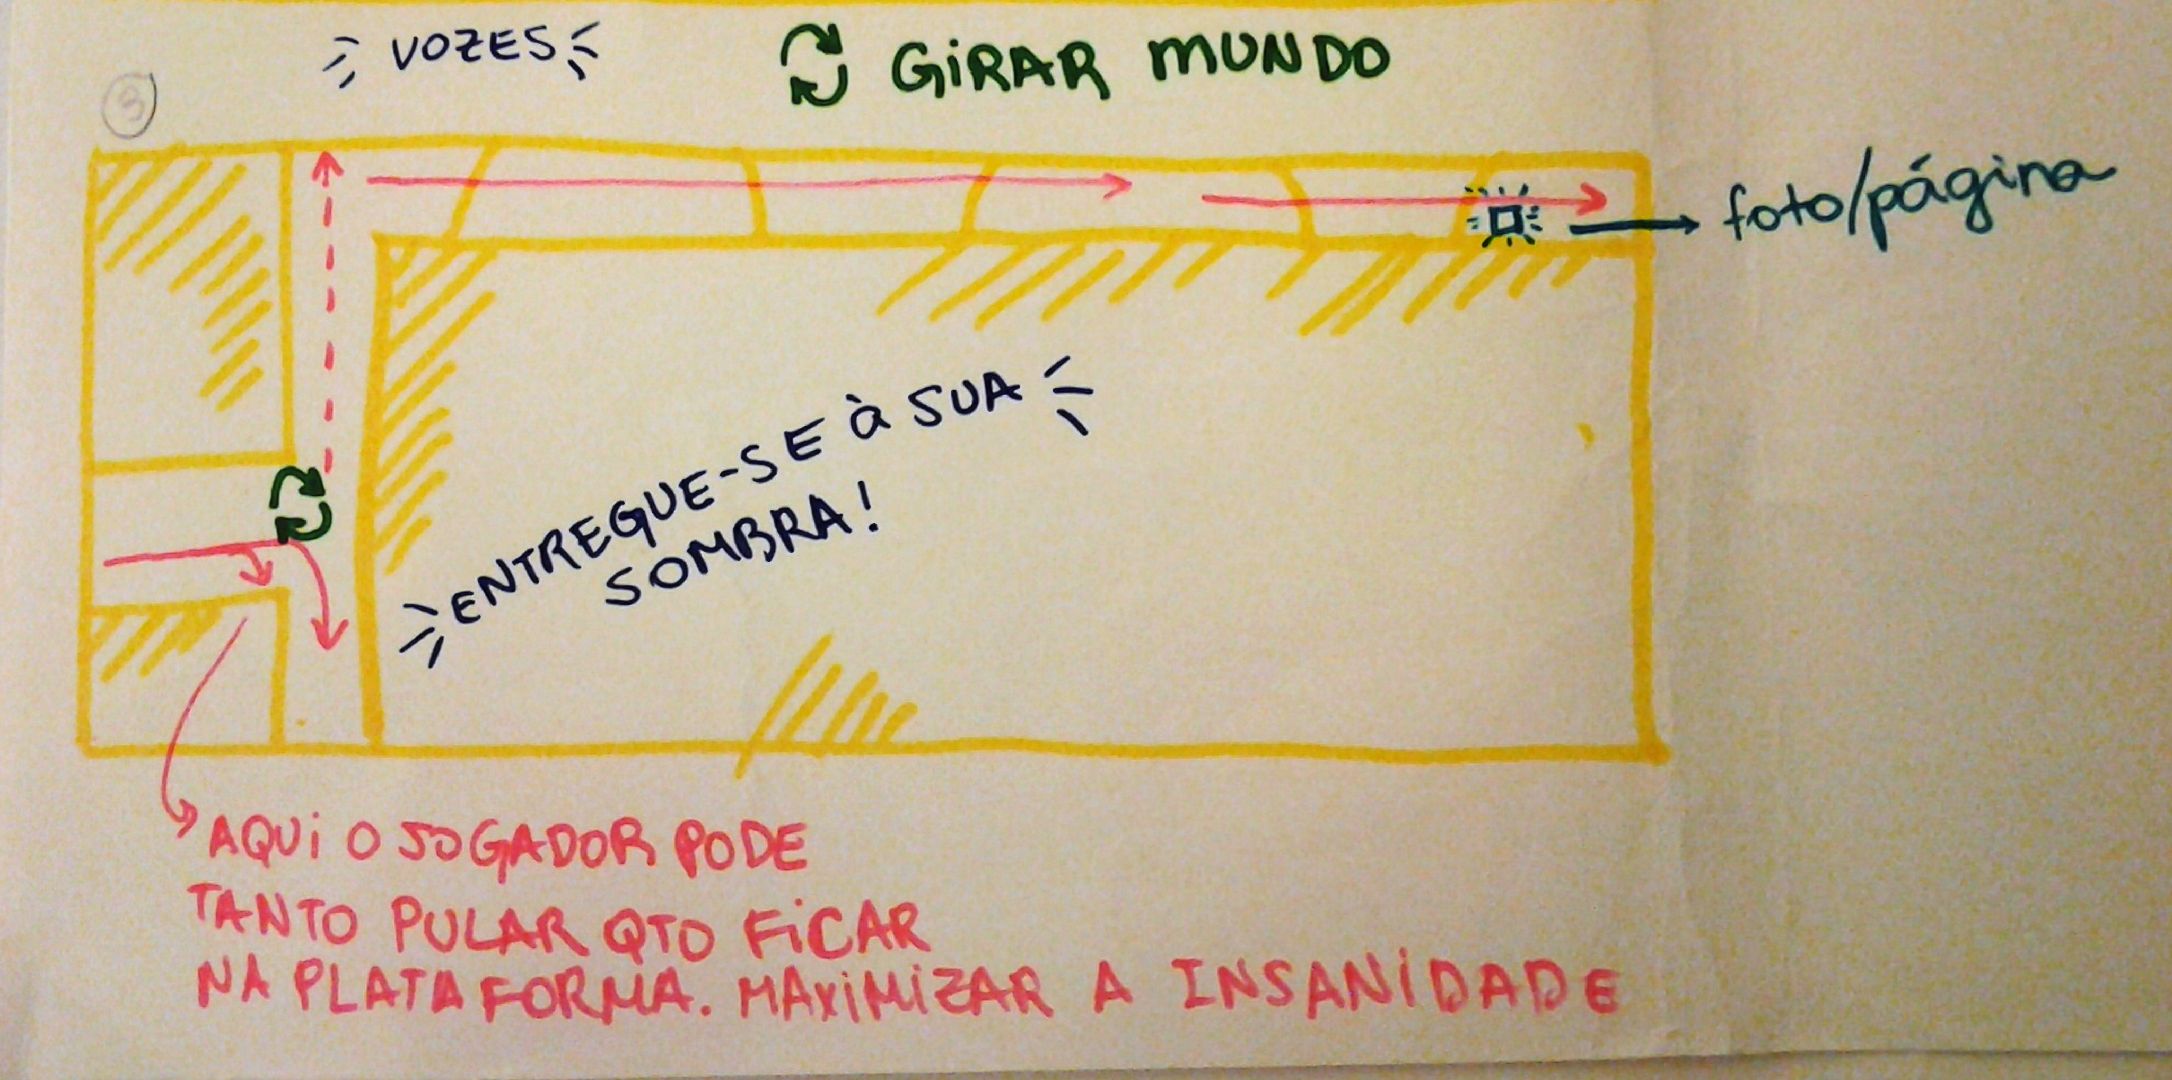 VOZES
GIRAR MUNDO
3
foto/página
ENTREGUE-SE À SUA
SOMBRA!
AQUI O JOGADOR PODE
TANTO PULAR QTO FICAR
NA PLATAFORMA. MAXIMIZAR A INSANIDADE